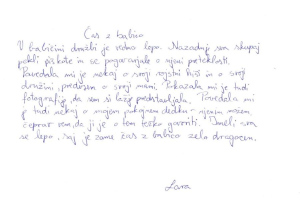 Čas z babico
V babičini družbi je vedno lepo. Nazadnje sva skupaj
pekli piškote in se pogovarjale o njeni preteklosti.
Povedala mi je nekaj o svoji rojstni hiši in o svoji
družini, predvsem o svoji mami. Pokazala mi je tudi
fotografije, da sem si lažje predstavljala. Povedala mi
je tudi nekaj o mojem pokojnem dedku - njenem možem
čeprav vem, da ji je o tem težko govoriti. Imeli sva
se lepo, saj je zame čas z babico zelo dragocen.
Lara